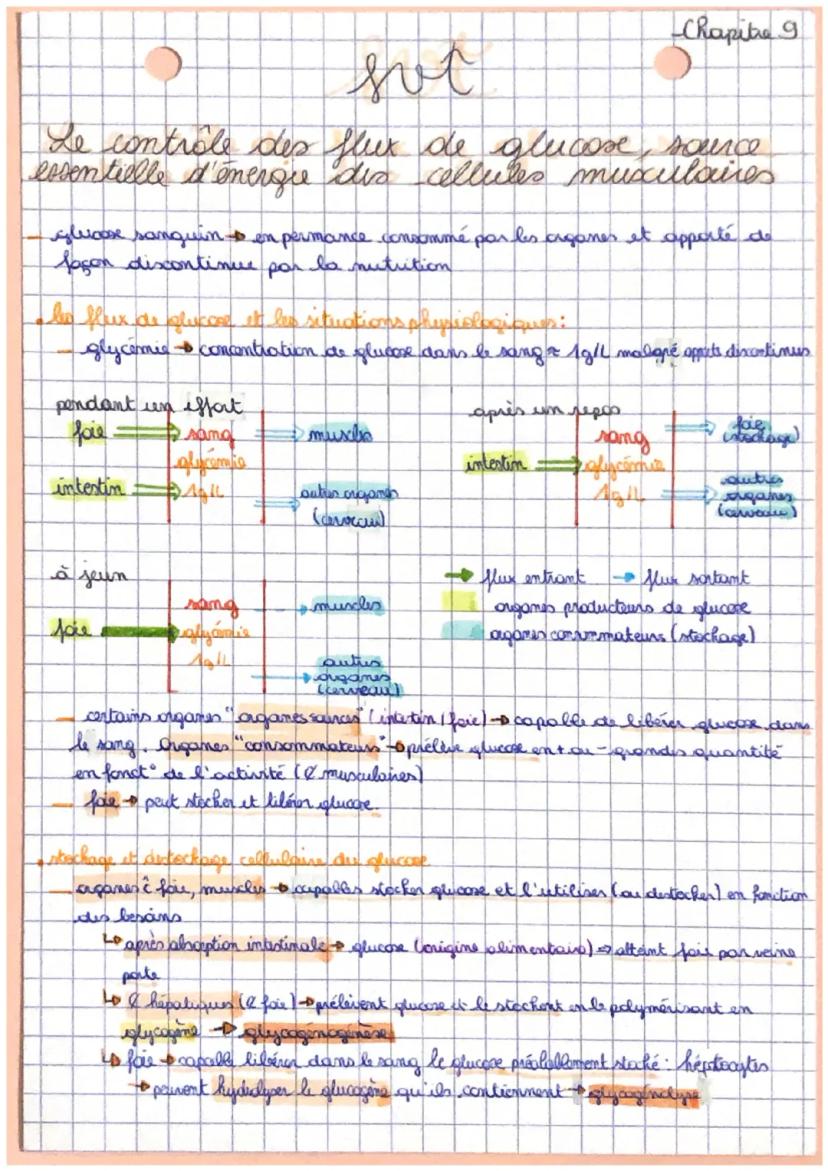 Chapitre 9
svt
Le contrôle des flux de glucose, source
essentielle d'énergie des cellules musculaires
– glucose sanguin → en permance consommé par les organes et apporté de
façon discontinue par la nutrition
• les flux de glucose et les situations physiologiques :
– glycémie → concentration de glucose dans le sang ≈ 1g/L malgré apports discontinus
pendant un effort
foie ⇒ sang ⇒ muscles
glycémie
intestin ⇒ 1g/L ⇒ autres organes
(cerveau)
après un repos
sang ⇒ foie
(stockage)
intestin ⇒ glycémie
1g/L ⇒ autres
organes
(cerveau)
à jeun
sang → muscles
foie → glycémie
1g/L → autres
organes
(cerveau)
→ flux entrant → flux sortant
organes producteurs de glucose
organes consommateurs (stockage)
– certains organes "organes sources" (intestin / foie) → capable de libérer glucose dans
le sang. Organes "consommateurs" → prélève glucose en + ou – grandes quantité
en fonct° de l'activité (¢ musculaires)
– foie → peut stocker et libérer glucose.
• stockage et destockage cellulaire du glucose
– organes ĉ foie, muscles → capables stocker glucose et l'utilises (ou destocker) en fonction
des besoins
↳ après absorption intestinale → glucose (origine alimentaire) ⇒ atteint foie par veine
porte
↳ ¢ hépatiques (¢ foie) → prélèvent glucose et le stockent en le polymérisant en
glycogène → glycogénogenèse
↳ foie → capable libérer dans le sang le glucose préalablement stocké : héptocytes
→ peuvent hydrolyser le glucogène qu'ils contiennent → glycogénolyse